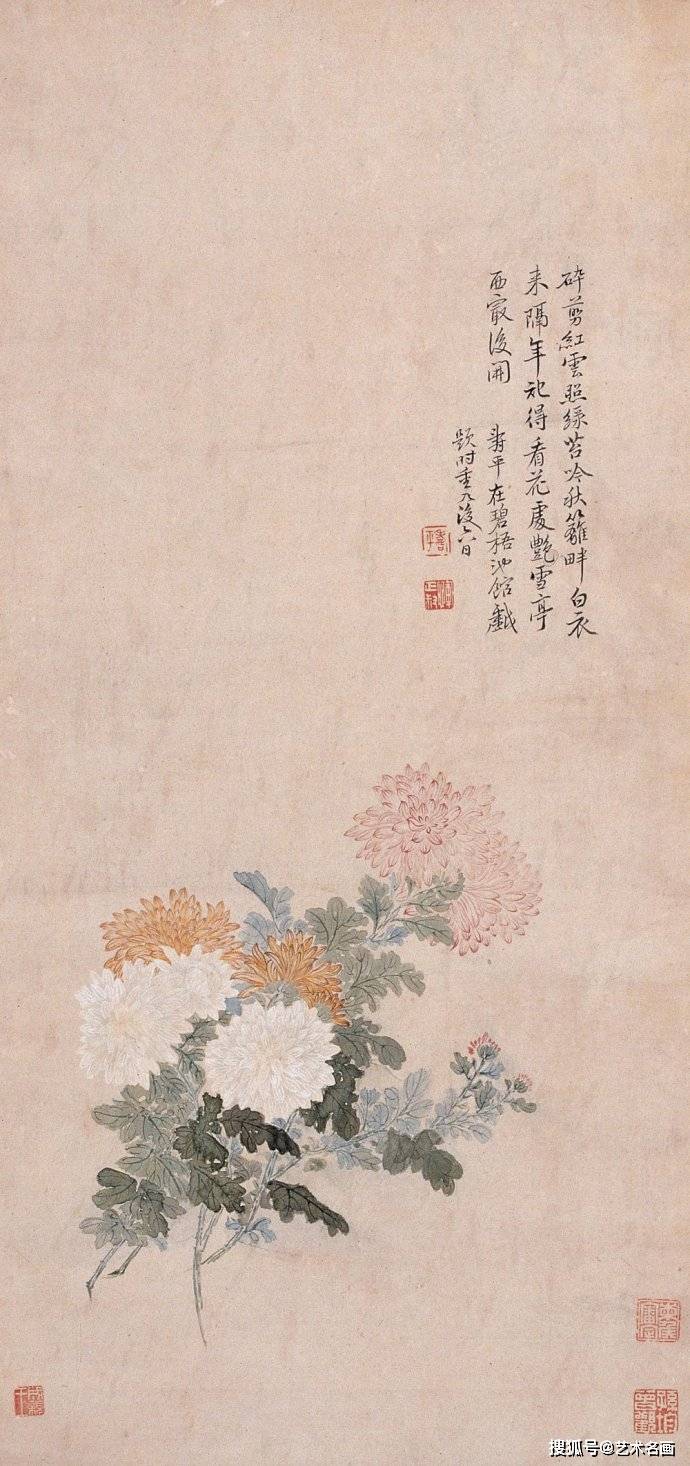 碎剪紅雲照綠苔吟秋籬畔白衣
来隔年記得看花處艷雪亭
西最後開
壽平在碧梧池館戲
题时重九後六日
壽平
搜狐号@艺术名画